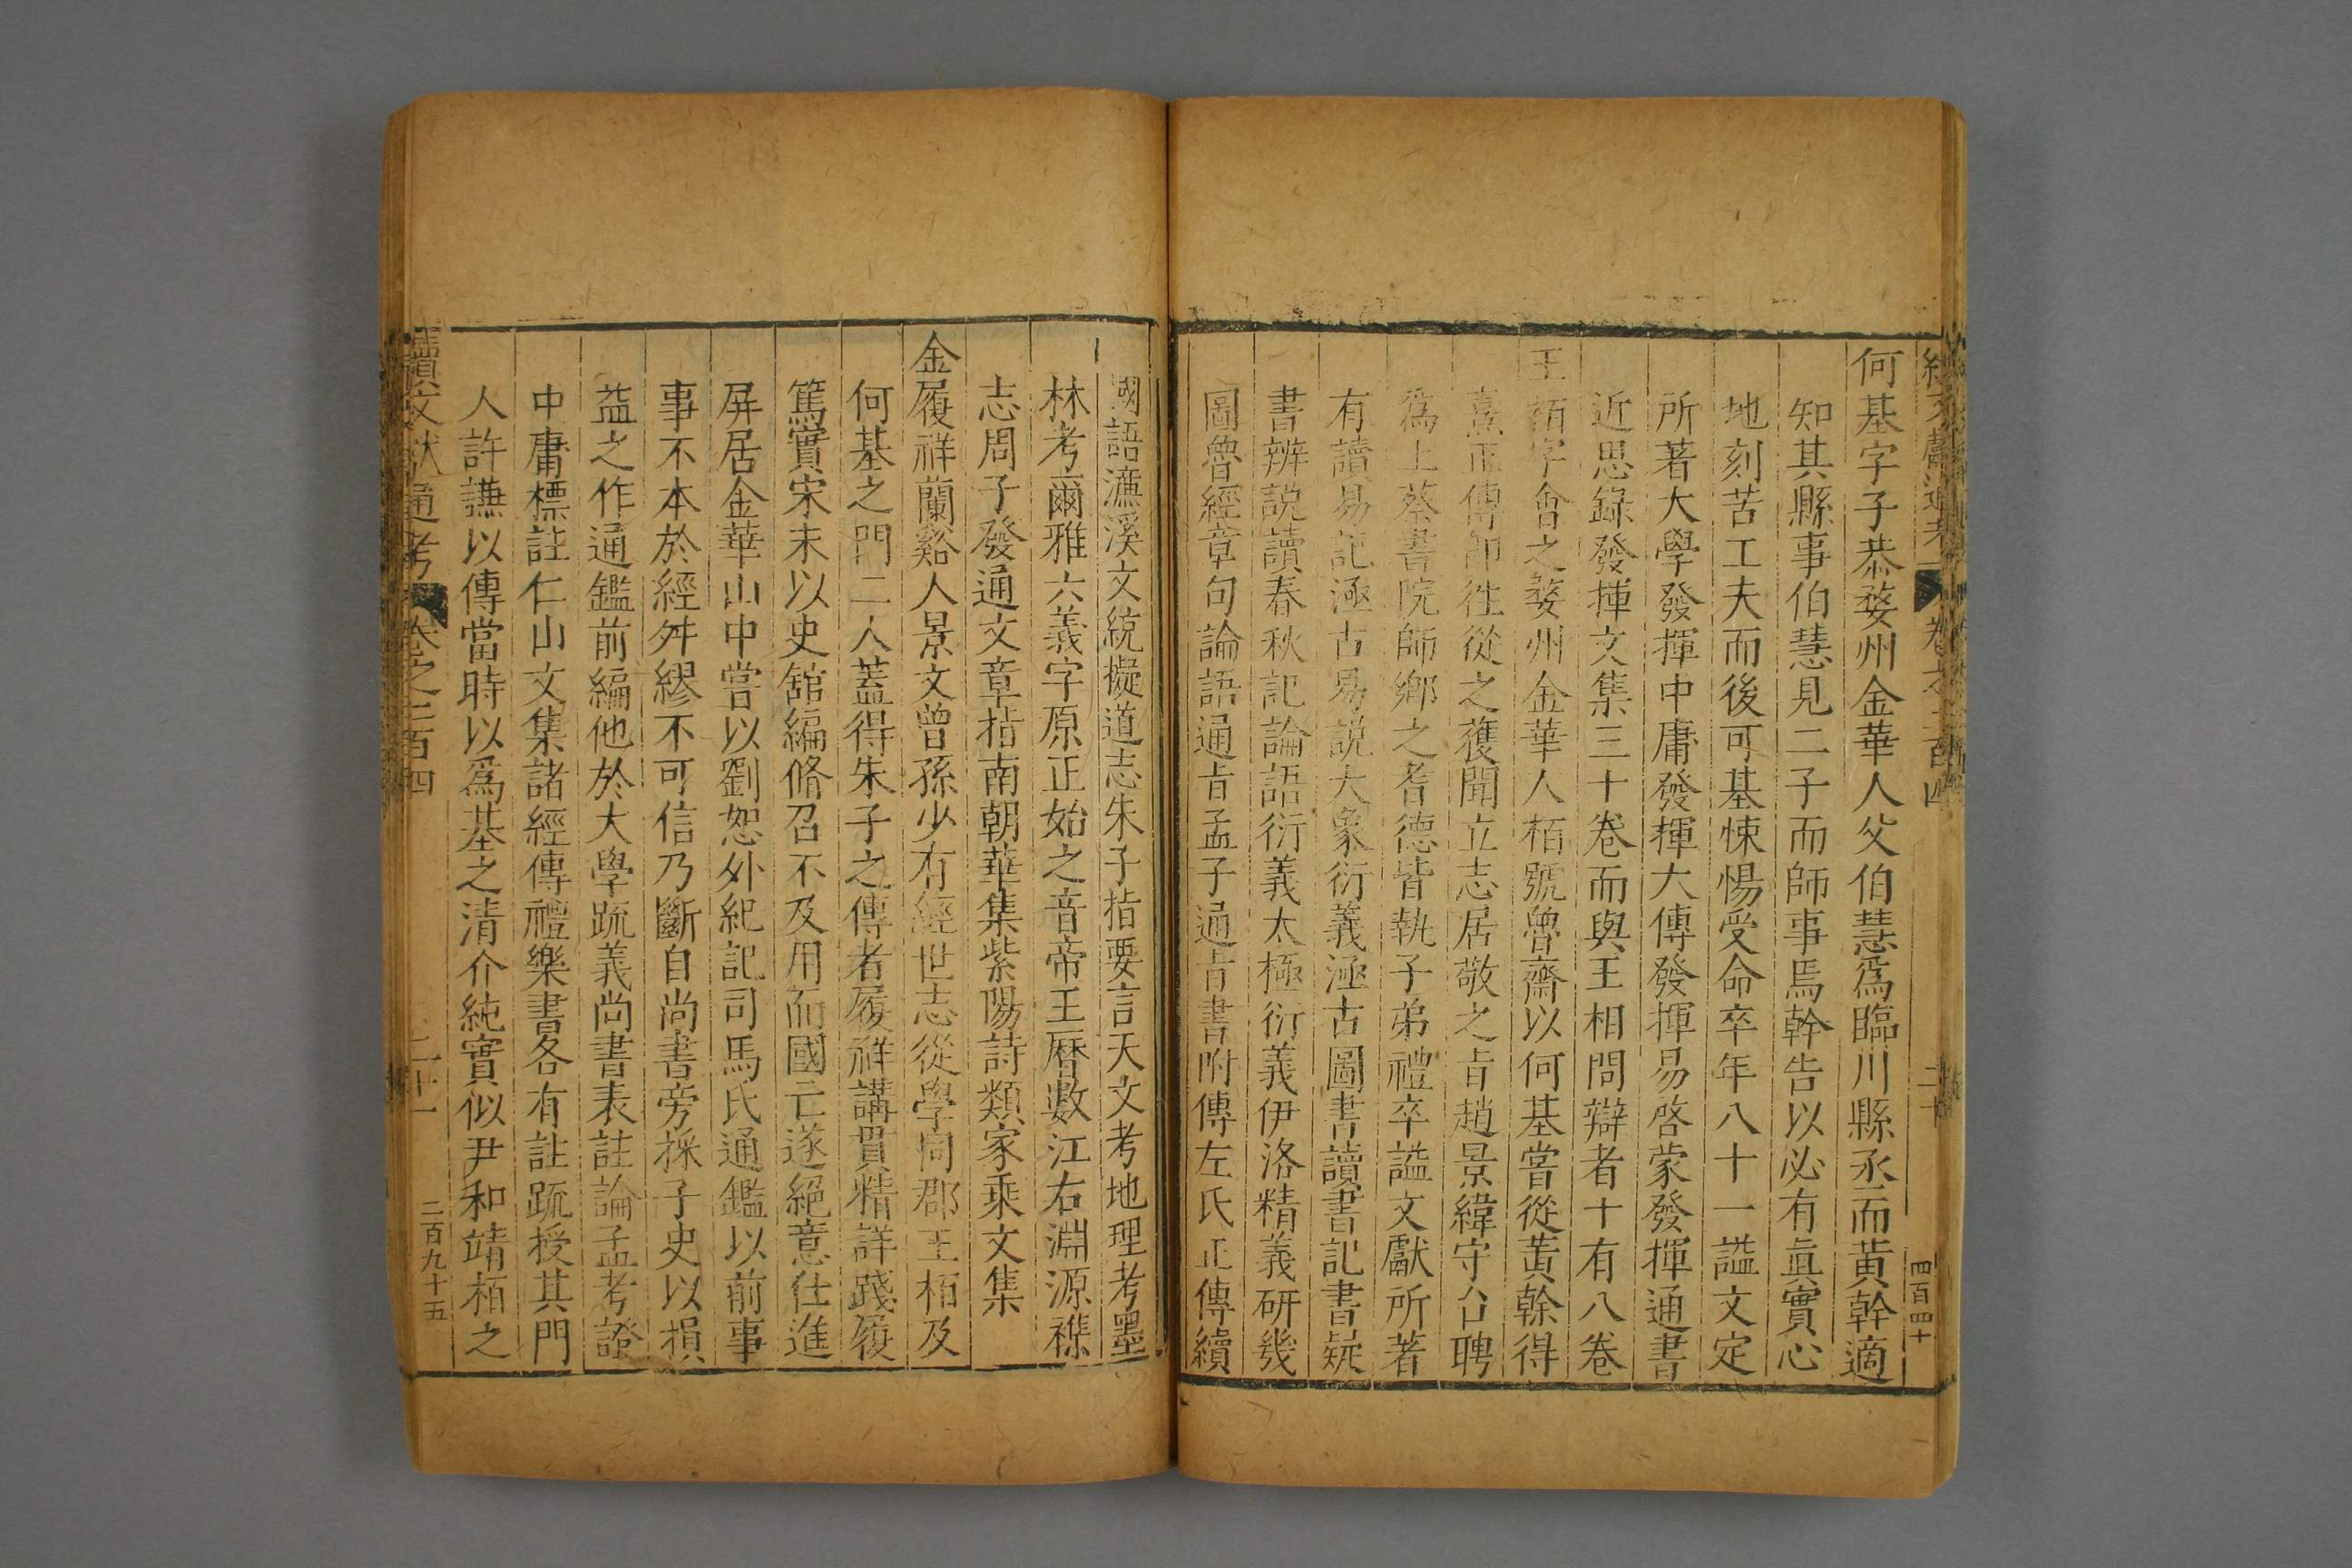 何基字子恭婺州金華人父伯慧爲臨川縣丞而黄幹適
知其縣事伯慧見二子而師事焉幹告以必有眞實心
地刻苦工夫而後可基悚惕受命卒年八十一謚文定
所著大學發揮中庸發揮大傳發揮易啓蒙發揮通書
近思錄發揮文集三十卷而與王相問辯者十有八卷
王栢字會之婺州金華人栢號魯齋以何基嘗從黄榦得
熹正傳卽徃從之獲聞立志居敬之㫖趙景緯守台聘
爲上蔡書院師鄉之耆德皆執子弟禮卒謚文獻所著
有讀易記涵古易説大象衍義涵古圖書讀書記書疑
書辨説讀春秋記論語衍義太極衍義伊洛精義研幾
圖魯經章句論語通㫖孟子通㫖書附傳左氏正傳續
國語濂溪文統擬道志朱子指要言天文考地理考墨
林考爾雅六義字原正始之音帝王曆數江右淵源襍
志周子發通文章指南朝華集紫陽詩類家乘文集
金履祥蘭谿人景文曾孫少有經世志從學同郡王栢及
何基之門二人蓋得朱子之傳者履祥講貫精詳踐履
篤實宋末以史舘編脩召不及用而國亡遂絕意仕進
屏居金華山中嘗以劉恕外紀記司馬氏通鑑以前事
事不本於經舛繆不可信乃斷自尚書旁採子史以損
益之作通鑑前編他於大學疏義尚書表註論孟考證
中庸標註仁山文集諸經傳禮樂書各有註疏授其門
人許謙以傳當時以爲基之清介純實似尹和靖栢之
續文獻通考 卷之二百四 二十一 二百九十五